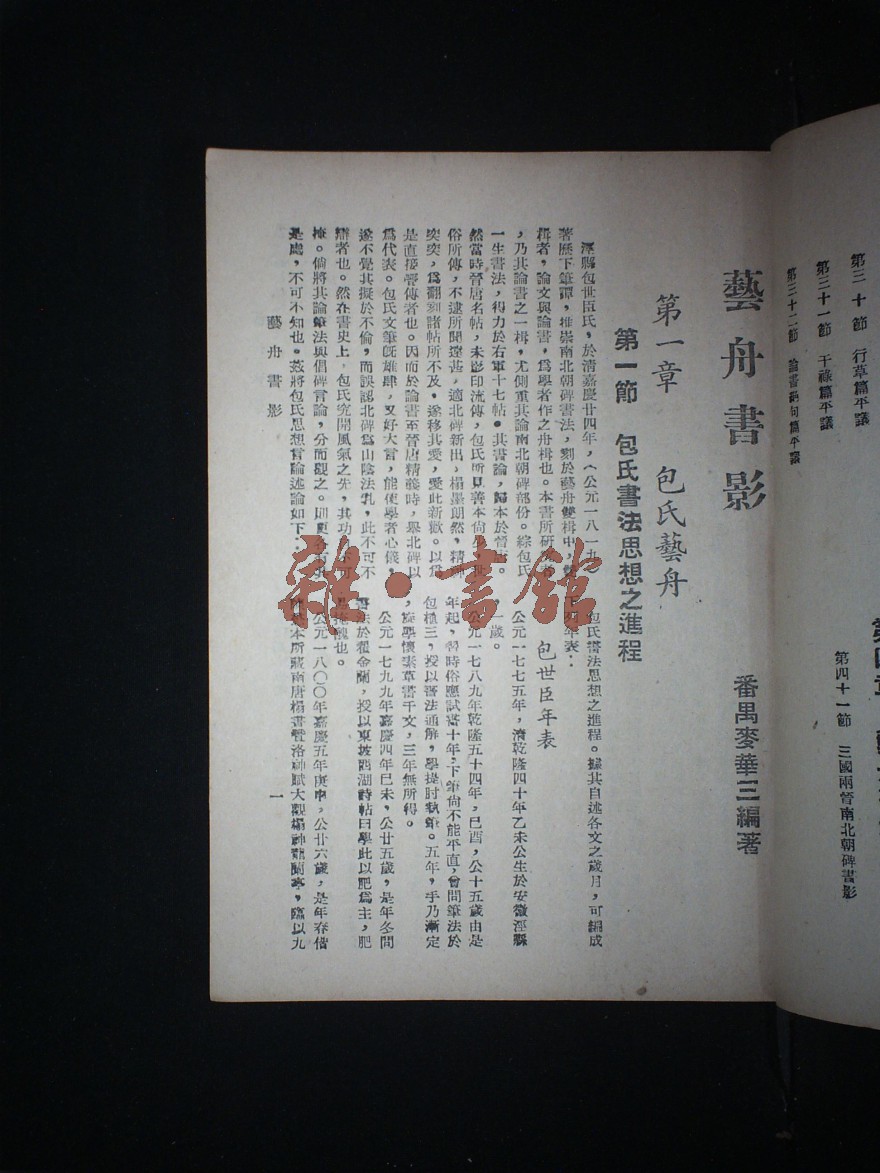 第三十節 行草篇平議
第三十一節 干祿篇平議
第三十二節 論書絕句篇平議
第四十一節 三國兩晉南北朝碑書影
藝舟書影
番禺麥華三編著
第一章 包氏藝舟
第一節 包氏書法思想之進程
涇縣包世臣氏,於清嘉慶廿四年,(公元一八一九
著歷下筆譚,推崇南北朝碑書法,刻於藝舟雙楫中,
楫者,論文與論書,爲學者作之舟楫也。本書所研
,乃其論書之一楫,尤側重其論南北朝碑部份。綜包氏
一生書法,得力於右軍十七帖。其書論,歸本於晉
然當時晉唐名帖,未影印流傳,包氏所見善本尙
俗所傳,不逮所聞遠甚,適北碑新出,楊墨朗然,精
奕奕,爲翻刻諸帖所不及,遂移其愛,愛此新歡。以爲
是直接晉傳者也。因而於論書至晉唐精義時,舉北碑以
爲代表。包氏文筆旣雄肆,又好大言,能使學者心儀,
遂不覺其擬於不倫,而誤認北碑爲山陰法乳,此不可不
辯者也。然在書史上,包氏究開風氣之先,其功
掩。倘將其論筆法與倡碑言論,分而觀之。則
是處,不可不知也。茲將包氏思想言論述論如下:
包氏書法思想之進程。據其自述各文之歲月,可編成
年表:
包世臣年表
公元一七七五年,清乾隆四十年乙未公生於安徽涇縣
一歲。
公元一七八九年乾隆五十四年,已酉,公十五歲由是
年起,習時俗應試書十年,下筆尙不能平直,曾問筆法於
包槓三,授以書法通解,學提肘執筆。五年,手乃漸定
,旋學懷素草書千文,三年無所得。
公元一七九九年嘉慶四年已未,公廿五歲,是年冬問
書法於翟金蘭,授以東坡西湖詩帖曰學此以肥爲主,肥
掩醜也。
公元一八〇〇年嘉慶五年庚申,公廿六歲,是年春借
本所藏南唐楊書贊洛神賦大觀楊神龍蘭亭,臨以九
藝舟書影
一
雜·書館